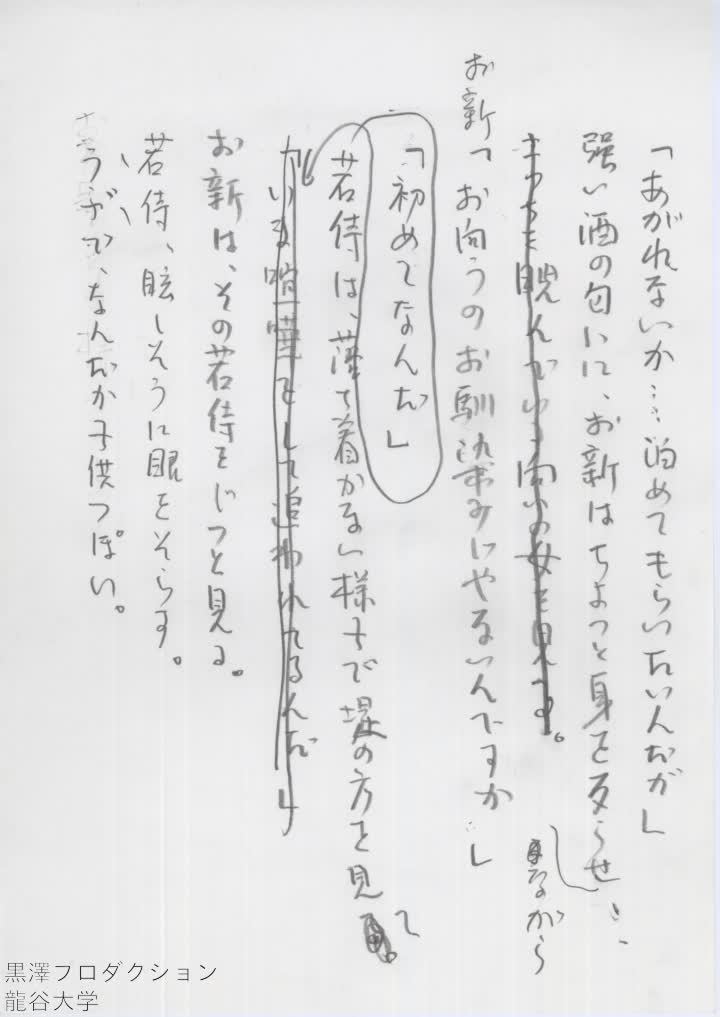 「あがれないか…泊めてもらいたいんだが」
強い酒の匂いに、お新はちよつと身を反らせ、
ながら
こつちを睨んでいる向いの女を見る。
お新「お向うのお馴染みにやないんですか…」
「初めてなんだ」
若侍は、落ち着かない様子で堤の方を見て
「いま喧嘩をして追われてるんだ」
お新は、その若侍をじつと見る。
若侍、眩しそうに眼をそらす。
うぶで、なんだか子供つぽい。
黒澤プロダクション
龍谷大学